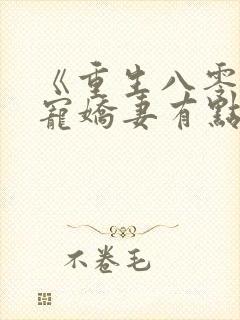 《重生八零
寵嬌妻有點
不卷毛